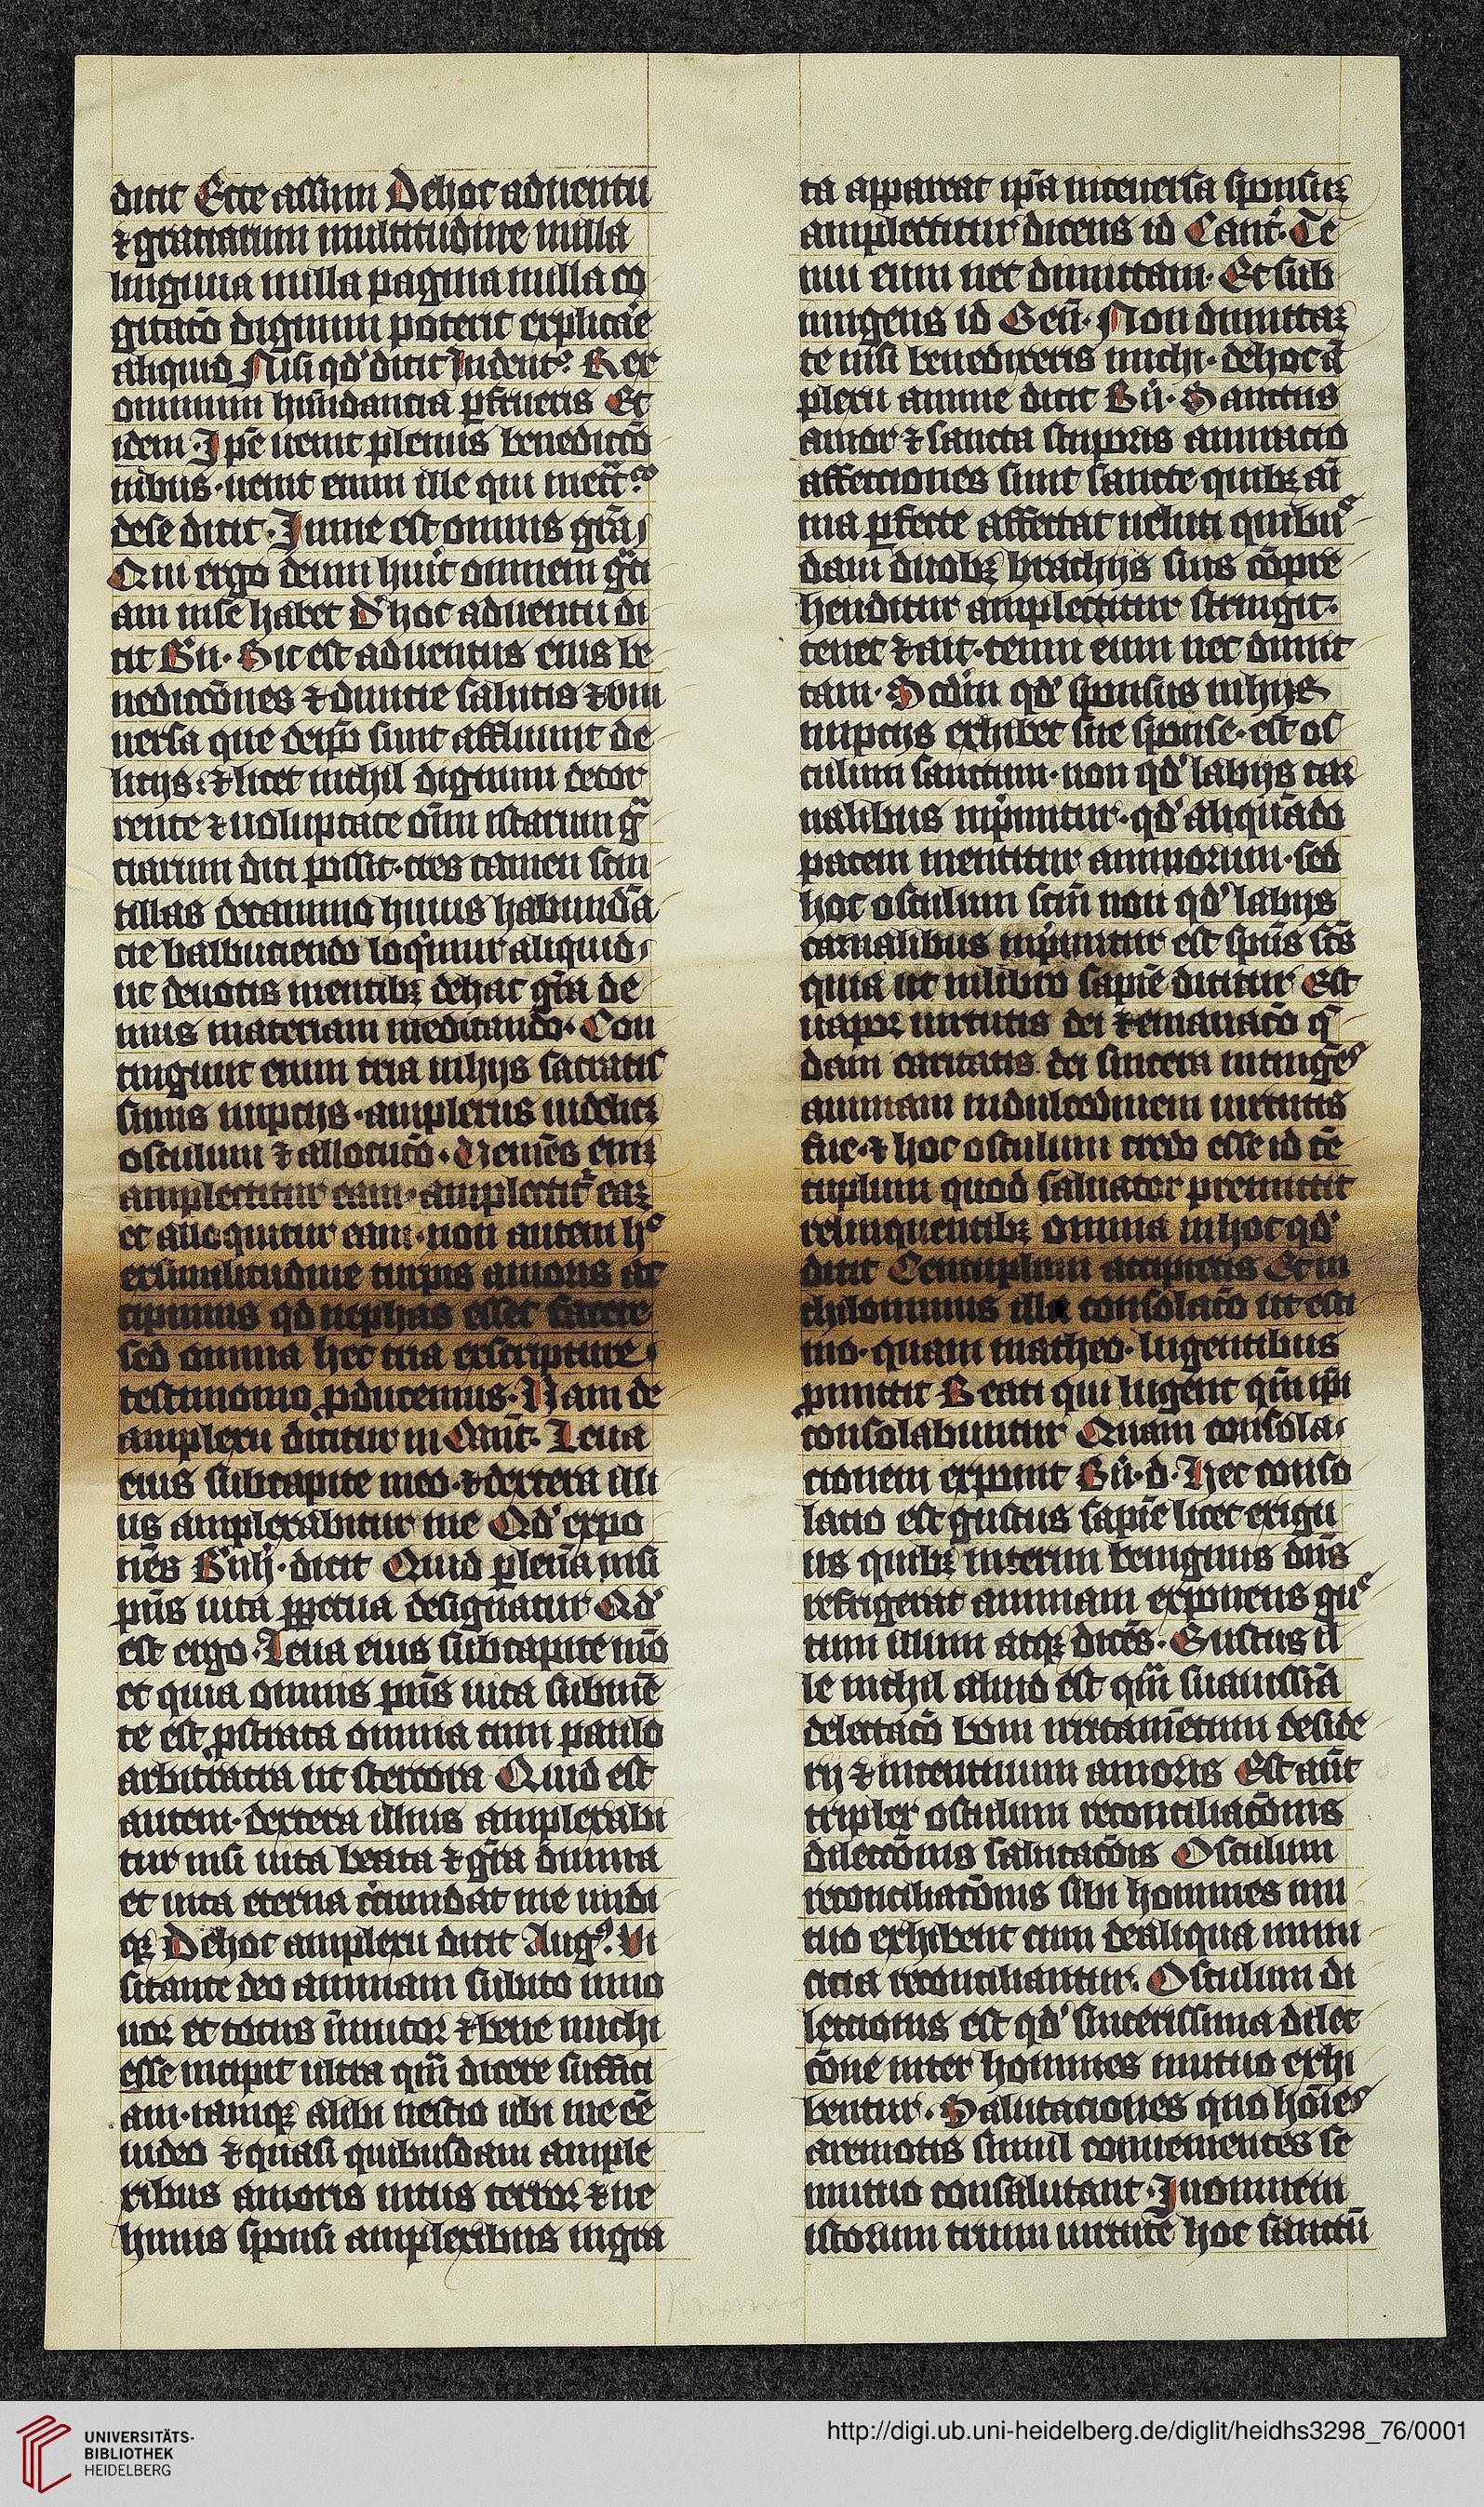 dicit Ecce assum De hoc aduentu
⁊ gratiarum multitudine nulla
lingwa nulla pagina nulla co
gitac̄o dignum poterit explicare
aliquid Nisi qd' dicit
omnium habundancia ꝑfrueris Et
idem Ipse uenit plenus benedicc̄o
nibus · uenit enim ille qui
de se dicit · In me est omnis gr̄a
Qui ergo deum huic omnem gr̄a
am in se habet D' hoc aduentu di
cit B̄n · Sic est aduentus eius be
nedicc̄ones ⁊ diuicie salutis ⁊ vni
uersa que de ip̄o sunt affluunt de
licijs · ⁊ licet nichil dignum
uoluptate om̄i istarum gr̄a
ciarum dici possit · tres tamen scin
tillas de camino huius habundā
cie balbuciendo loqᵢmur aliquid
ut deuotis mentibꝫ de hac gr̄a de
mus materiam meditando · Con
tingunt enim tria in hijs sacratis
simis nupcijs · amplexus uidelicꝫ
osculum ⁊ allocuc̄o · Ueniēs enī
amplectitur eam · eaꝫ
et alloquitur eam · non autem h̄
ex similitudine turpis amoris ac
cipimus qd nephas esset facere
sed omnia hec tria ex scripture
testimonio ꝓducemus · Nam de
amplexu dicitur in Cant̄ · Leua
eius sub capite meo · ⁊ dextera illi
us amplexabitur me Qd' expo
nēs dicit Quid ꝑ leuā nisi
pn̄s uita ꝑpetua designatur Qd'
est ergo · Leua eius sub capite m̄o
et quia omnis pn̄s uita sub mē
te est ꝓstrata omnia cum paulo
arbitratra ut stercora Quid est
autem · dextera illius amplexabi
tur nisi uita beata ⁊ gr̄a diuina
et uita eterna circundat me undi
qꝫ De hoc amplexu dicit Augꝰ · Vi
sitante deo animam subito inno
uor et totus īmutor ⁊ bene michi
esse incipit ultra qm̄ dicere suffici
am · iamqꝫ alibi nescio ubi me eē
uideo ⁊ quasi quibusdam ample
xibus amoris intus teneor ⁊ ne
huius sponsi amplexibus ingra
ta appareat ip̄a uice uersa sponsuꝫ
amplectitur dicens id Cant̄ · Te
nui eum nec dimittam · Et sub
iungens id Gen̄ · Non dimittaꝫ
te nisi benedixeris michi · de hoc ā
plexu anime dicit B̄n · Sanctus
amor ⁊ sancta
affecciones sunt sancte quibꝫ ani
ma ꝑfecte affectat ueluti quibus
dam duobꝫ brachijs suis cōpre
henditur amplectitur stringit ·
tenet ⁊ ait · tenui eum nec dimit
tam · Scd̄m qd' sponsus in hijs
nupcijs exhibet sue sponse · est os
culum sanctum · non qd' labijs car
nalibus inp̄mitur · qd' aliquādo
pacem mentitur animorum · sed
hoc osculum scm̄ non qd' labijs
carnalibus inp̄mitur est sp̄us scs̄
quia ut in libro sapiē dicitur Est
uapor uirtutis dei ⁊ emanac̄o q̄
dam caritatis dei sincera
animam in dulcedinem uirtutis
sue · ⁊ hoc osculum credo esse id cē
tuplum quod saluator premittit
relinquentibꝫ omnia in hoc qd'
dicit Centuplum accipietis Et ni
chilominus illa consolac̄o ut esti
mo · quam matheo · lugentibus
ꝓmittit Beati qui lugent qm̄ ip̄i
consolabuntur Quam consola
cionem exponit B̄n · d · Hec conso
latio est gustus sapiē licet exigu
us quibꝫ interim benignus dn̄s
refrigerat animam exponens gus
tum illum atqꝫ dicēs · Gustus il
le nichil aliud est qm̄ suauissīa
delectac̄o boni iuxta ūetum deside
rij ⁊ intentiuum amoris Est aūt
triplex osculum reconciliac̄onis
dilecc̄onis salutac̄ois Osculum
reconciliac̄onis sibi homines mu
tuo exhibent cum de aliqua inimi
citia reconciliantur · Osculum di
leccionis est qd' sincerissima dilec
c̄one inter homines mutuo exhi
bentur · Salutaciones quo hoīes
a remotis simul conuenientes se
mutuo consalutant · In omnem
istorum trium uirtute hoc sanctū
UNIVERSITÄTS-
BIBLIOTHEK
HEIDELBERG
http://digi.ub.uni-heidelberg.de/diglit/heidhs3298_76/0001